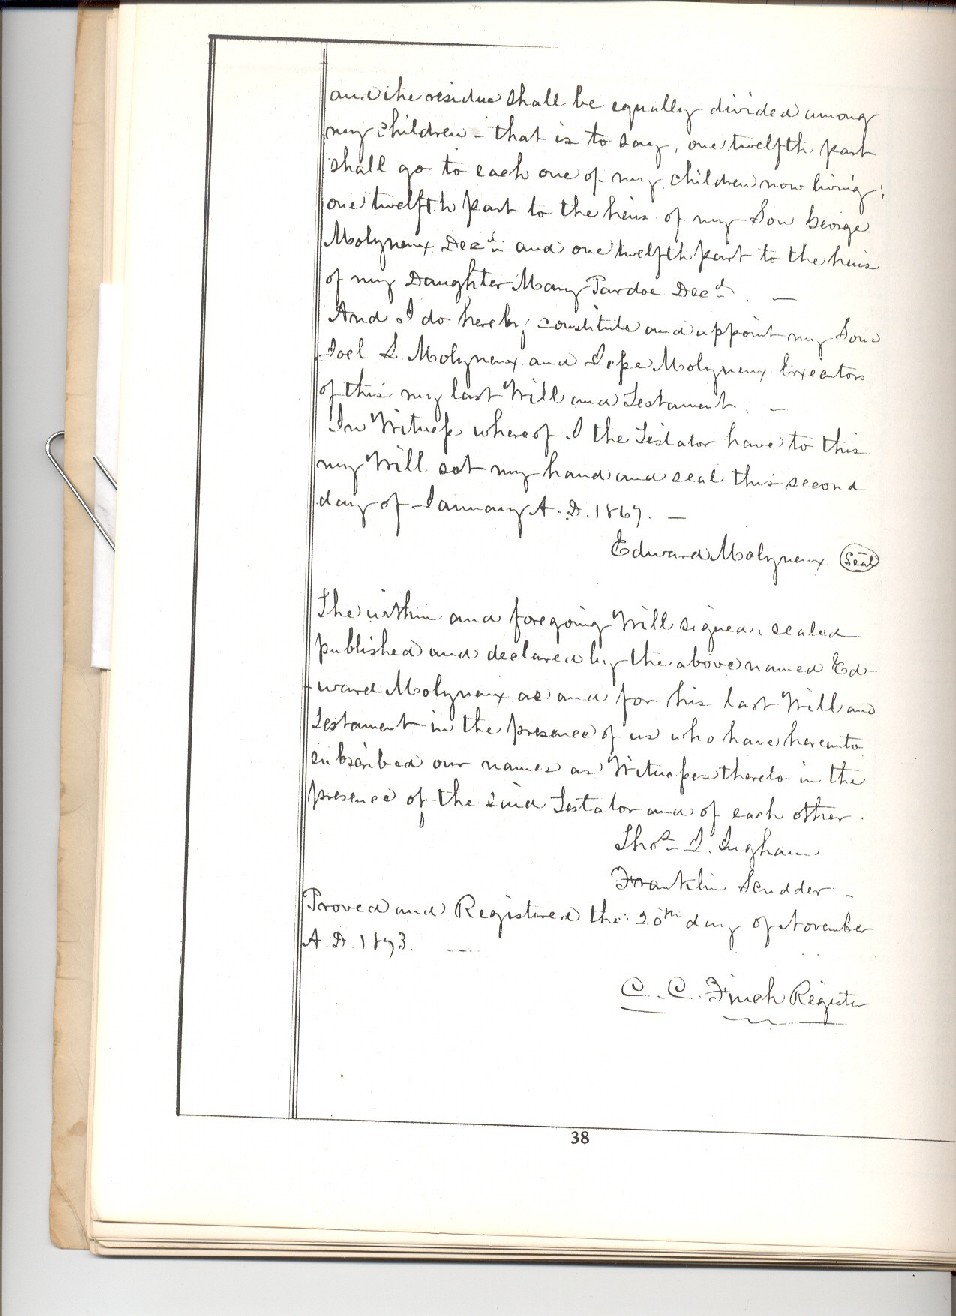 and the residue shall be equally divided among
my children - that is to say, one twelfth part
shall go to each one of my children now living,
one twelfth part to the heirs of my Son George
Molyneux Decd and one twelfth part to the heirs
of my Daughter Mary Pardoe Decd. —
And I do hereby constitute and appoint my Son
Joel S. Molyneux and Molyneux Executors
of this my last Will and Testament. —
In Witness whereof I the Testator have to this
my Will set my hand and seal this second
day of January A. D. 1867. —
Edward Molyneux Seal
The within and foregoing Will signed, sealed
published and declared by the above named Ed-
ward Molyneux as and for his last Will and
Testament in the presence of us who have hereunto
subscribed our names as Witnesses thereto in the
presence of the said Testator and of each other.
Thos. J. Ingham
Franklin Scudder -
Proved and Registered the 20th day of November
A. D. 1873. —
C. C. Finch Register
38